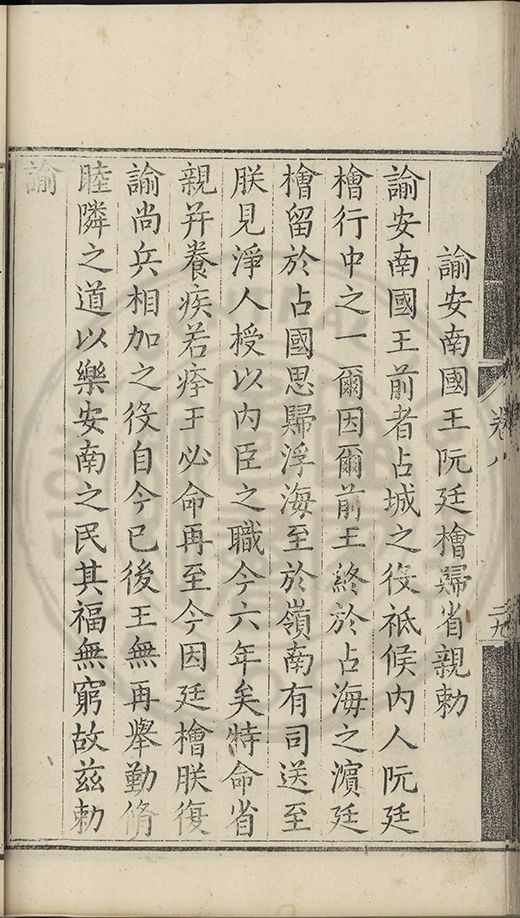 諭安南國王阮廷檜歸省親勑
諭安南國王前者占城之役祗候内人阮廷
檜行中之一爾因爾前王終於占海之濵廷
檜留於占國思歸浮海至於嶺南有司送至
朕見淨人授以内臣之職今六年矣特命省
親并養疾若痊王必命再至今因廷檜朕復
諭尚兵相加之役自今已後王無再舉勤脩
睦隣之道以樂安南之民其福無窮故兹勑
諭
卷八